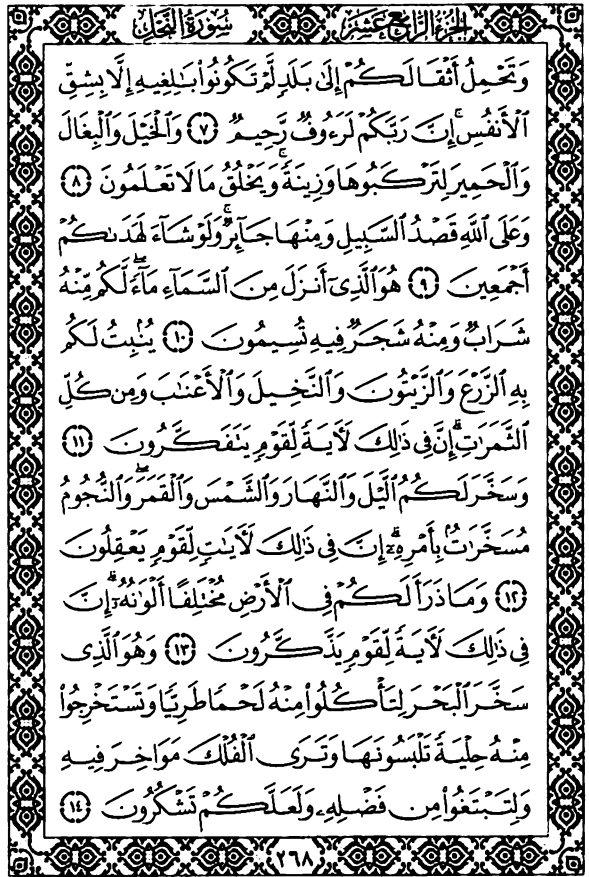 الجزء الرابع عشر سورة النحل
وَتَحْمِلُ أَثْقَالَكُمْ إِلَىٰ بَلَدٍ لَّمْ تَكُونُوا۟ بَـٰلِغِيهِ إِلَّا بِشِقِّ
ٱلْأَنفُسِ ۚ إِنَّ رَبَّكُمْ لَرَءُوفٌ رَّحِيمٌ ﴿٧﴾ وَٱلْخَيْلَ وَٱلْبِغَالَ
وَٱلْحَمِيرَ لِتَرْكَبُوهَا وَزِينَةً ۚ وَيَخْلُقُ مَا لَا تَعْلَمُونَ ﴿٨﴾
وَعَلَى ٱللَّهِ قَصْدُ ٱلسَّبِيلِ وَمِنْهَا جَآئِرٌ ۚ وَلَوْ شَآءَ لَهَدَىٰكُمْ
أَجْمَعِينَ ﴿٩﴾ هُوَ ٱلَّذِىٓ أَنزَلَ مِنَ ٱلسَّمَآءِ مَآءً ۖ لَّكُم مِّنْهُ
شَرَابٌ وَمِنْهُ شَجَرٌ فِيهِ تُسِيمُونَ ﴿١٠﴾ يُنۢبِتُ لَكُم
بِهِ ٱلزَّرْعَ وَٱلزَّيْتُونَ وَٱلنَّخِيلَ وَٱلْأَعْنَـٰبَ وَمِن كُلِّ
ٱلثَّمَرَٰتِ ۗ إِنَّ فِى ذَٰلِكَ لَـَٔايَةً لِّقَوْمٍ يَتَفَكَّرُونَ ﴿١١﴾
وَسَخَّرَ لَكُمُ ٱلَّيْلَ وَٱلنَّهَارَ وَٱلشَّمْسَ وَٱلْقَمَرَ ۖ وَٱلنُّجُومُ
مُسَخَّرَٰتٌۢ بِأَمْرِهِۦٓ ۗ إِنَّ فِى ذَٰلِكَ لَـَٔايَـٰتٍ لِّقَوْمٍ يَعْقِلُونَ
﴿١٢﴾ وَمَا ذَرَأَ لَكُمْ فِى ٱلْأَرْضِ مُخْتَلِفًا أَلْوَٰنُهُۥٓ ۗ إِنَّ
فِى ذَٰلِكَ لَـَٔايَةً لِّقَوْمٍ يَذَّكَّرُونَ ﴿١٣﴾ وَهُوَ ٱلَّذِى
سَخَّرَ ٱلْبَحْرَ لِتَأْكُلُوا۟ مِنْهُ لَحْمًا طَرِيًّا وَتَسْتَخْرِجُوا۟
مِنْهُ حِلْيَةً تَلْبَسُونَهَا وَتَرَى ٱلْفُلْكَ مَوَاخِرَ فِيهِ
وَلِتَبْتَغُوا۟ مِن فَضْلِهِۦ وَلَعَلَّكُمْ تَشْكُرُونَ ﴿١٤﴾
٢٦٨